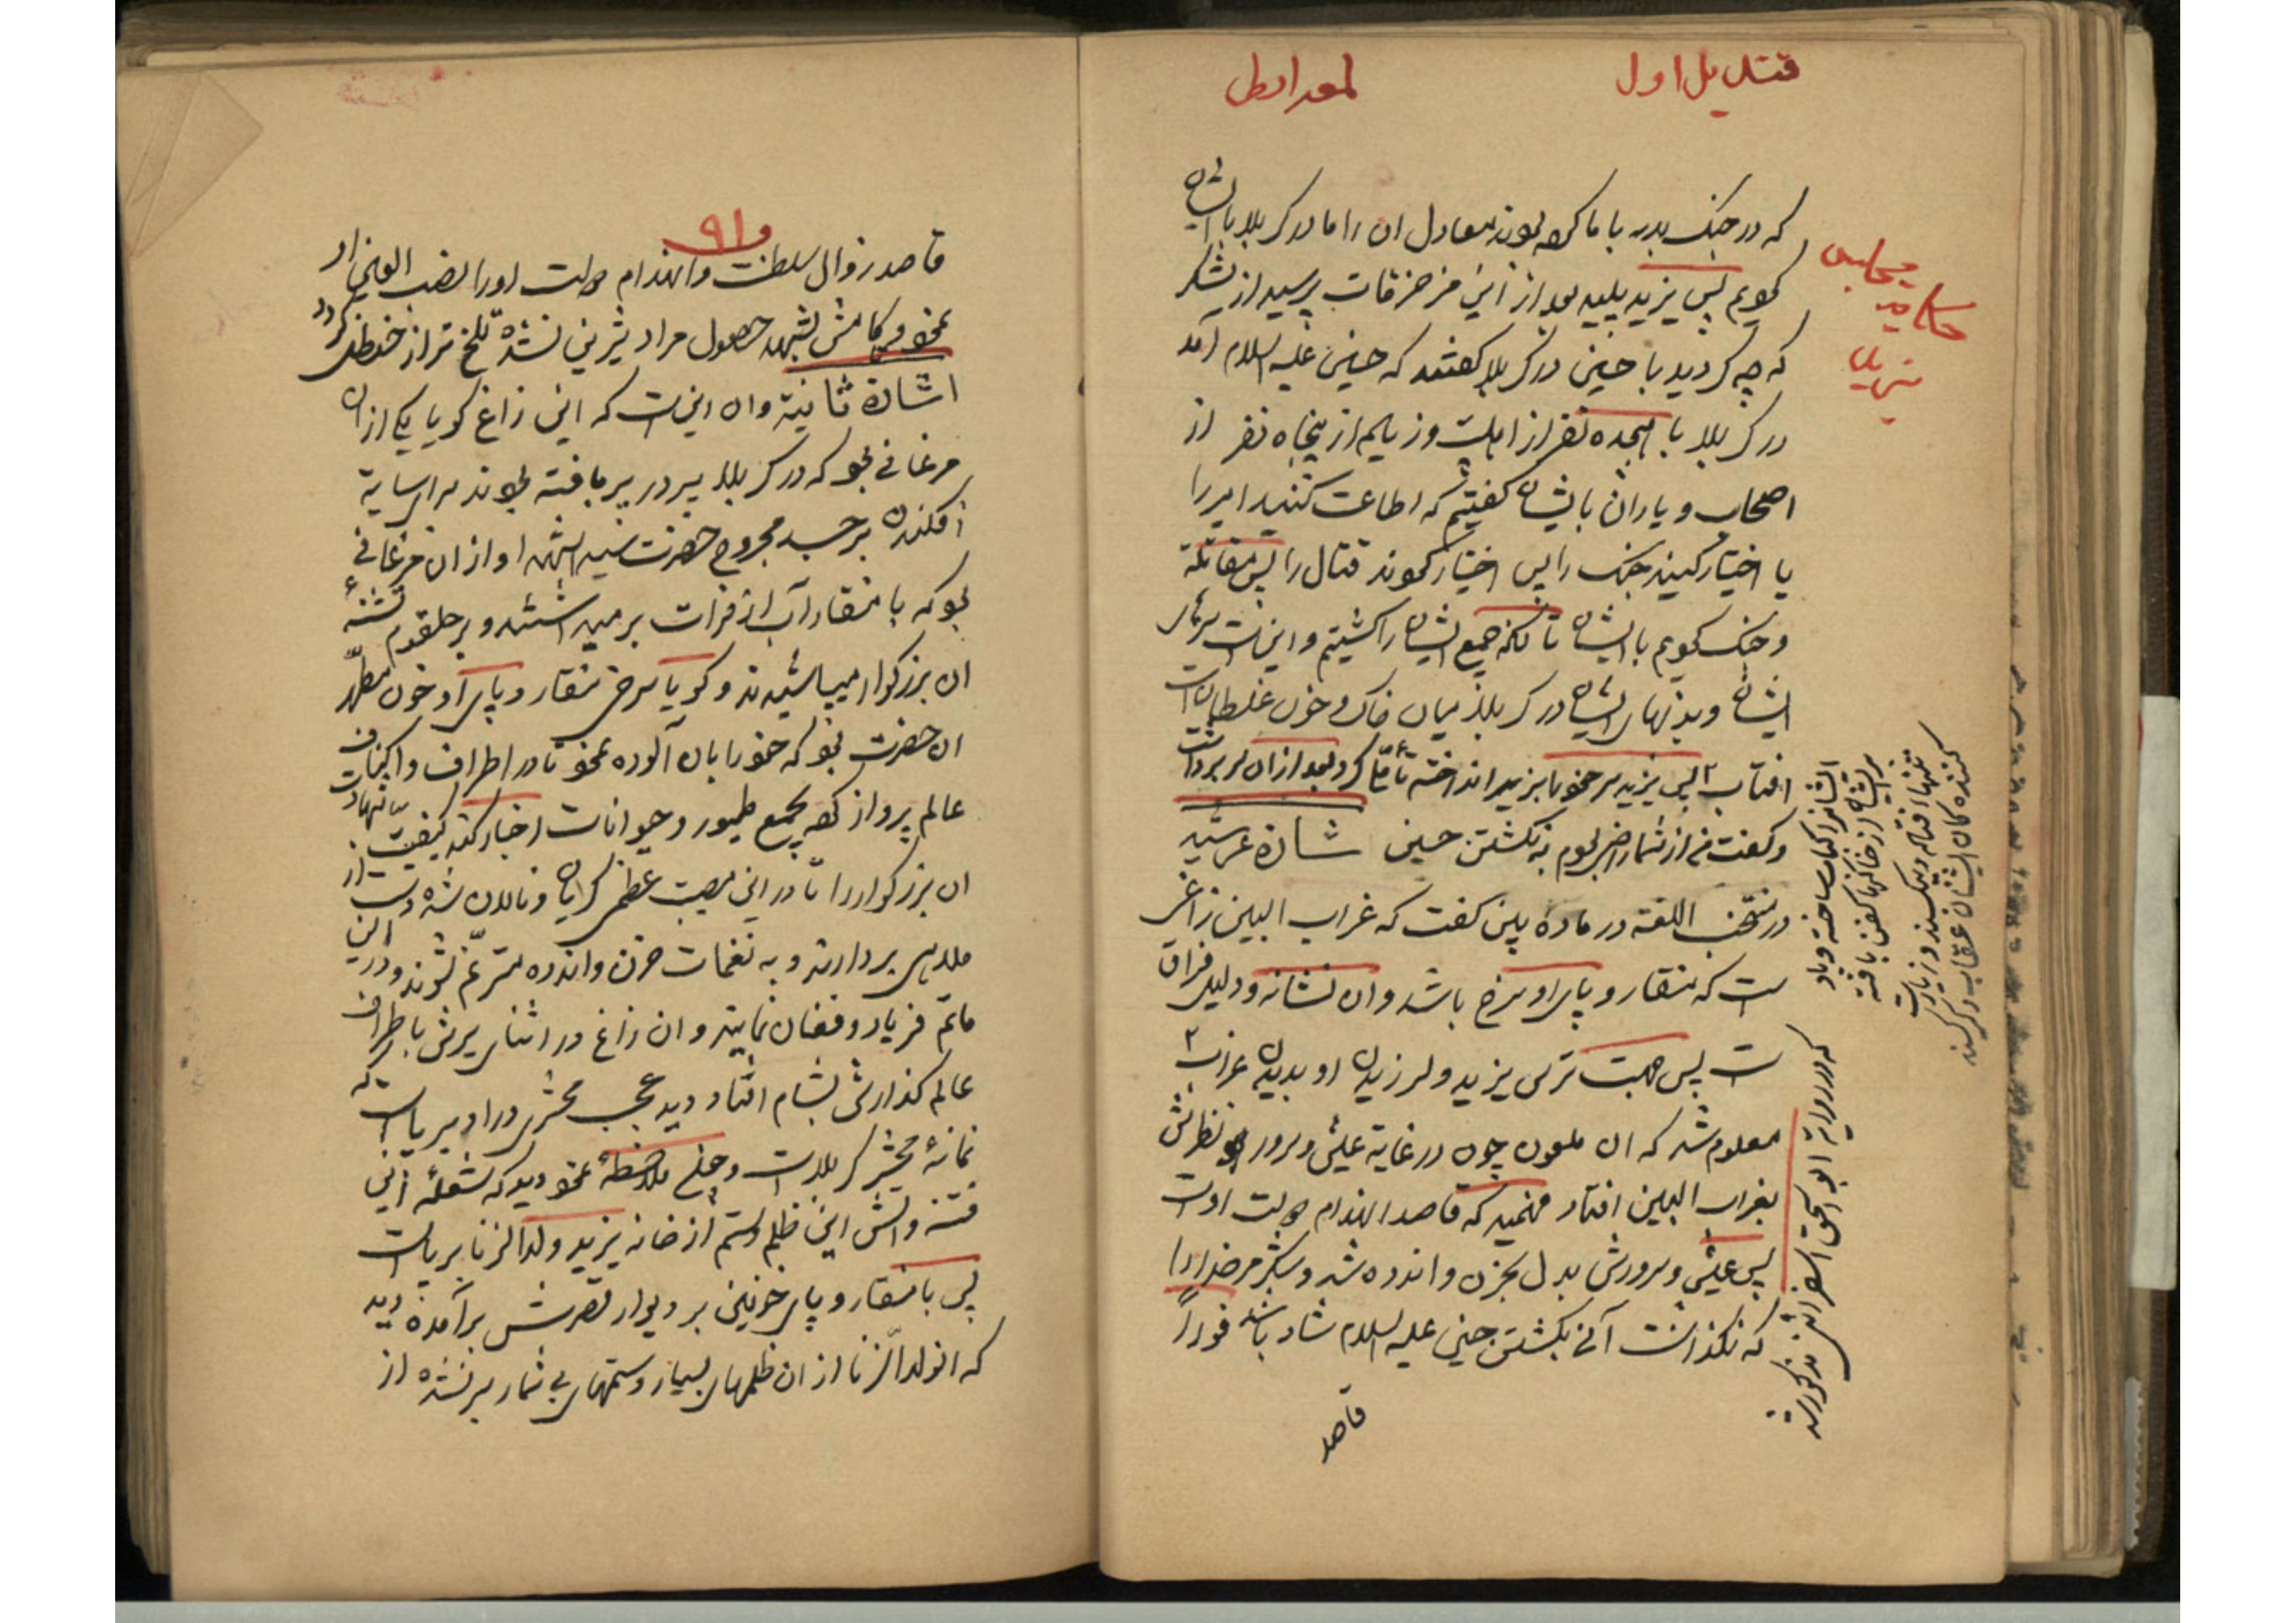 قندیل اول
که در جنک بدر با ما کرده بودند معادل ان را ما در کربلا با ایشان
کردیم پس یزید پلید بعد از این مزخرفات پرسید از لشکر
که چه کردید با حسین در کربلا گفتند که حسین علیه السلام آمد
در کربلا با هیجده نفر از اهلبیت و زیاده از پنجاه نفر از
اصحاب و یاران بایشان گفتیم که اطاعت کنید امیر را
یا اختیار کنید جنک را پس اختیار نمودند قتال را پس مقاتله
و جنک کردیم با ایشان تا آنکه جمیع ایشان را کشتیم و این است سرهای
ایشان و بدنهای ایشان در کربلا میان خاک و خون غلطان است
افتاب پس یزید سر خود را بزیر انداخته تأمل کرد بعد از ان سر برداشت
و گفت من از شما راضی بودم به نکشتن حسین اشارة عرشیه
در منتخب اللغه در ماده بین گفت که غراب البین زاغی
است که منقار و پای او سرخ باشد و ان نشانه و دلیل فراق
است پس جهت ترس یزید و لرزیدن او بدیدن غراب
معلوم شد که ان ملعون چون در غایة عیش و سرور بود نظرش
بغراب البین افتاد فهمید که قاصد انهدام دولت اوست
پس عیش و سرورش بدل بحزن و اندوه شد و شکر مر خدا را
که نگذاشت آنی بکشتن حسین علیه السلام شاد باشد فورا
قاصد
حکایت
مجلس
یزید
که در روایة ابو اسحق اسفراینی مذکور شد
۹۱
قاصد زوال سلطنت و انهدام دولت او را نصب العین او
نمود و کامش بشهد حصول مراد شیرین نشده تلخ تر از حنظل گردد
اشارة ثانیة و ان اینست که این زاغ گویا یکی از ان
مرغانی بود که در کربلا پر در پر بافته بودند برای سایه
افکندن بر جسد مجروح حضرت سید الشهدا و از ان مرغانی
بود که با منقار آب از فرات بر میداشتند و بر حلقوم تشنهٔ
ان بزرگوار میپاشیدند و گویا سرخی منقار و پای او خون مطهر
ان حضرت بود که خود را بان آلوده نمود تا در اطراف و اکناف
عالم پرواز کرده بجمیع طیور و حیوانات اخبار کند کیفیت شهادت
ان بزرگوار را تا در این مصیبت عظمی گریان و نالان شده دست از
ملاهی بردارند و به نغمات حزن و اندوه مترنم شوند و در این
ماتم فریاد و فغان نمایند و ان زاغ در اثنای پرش باطراف
عالم گذارش بشام افتاد دید عجب محشری در او برپاست که
نمانهٔ محشر کربلاست و چون ملاحظه نمود دید که شعله این
فتنه و آتش این ظلم و ستم از خانه یزید ولد الزنا برپاست
پس با منقار و پای خونین بر دیوار قصرش برآمده دید
که انولد الزنا از ان ظلمهای بسیار و ستمهای بی شمار سیر نشده از